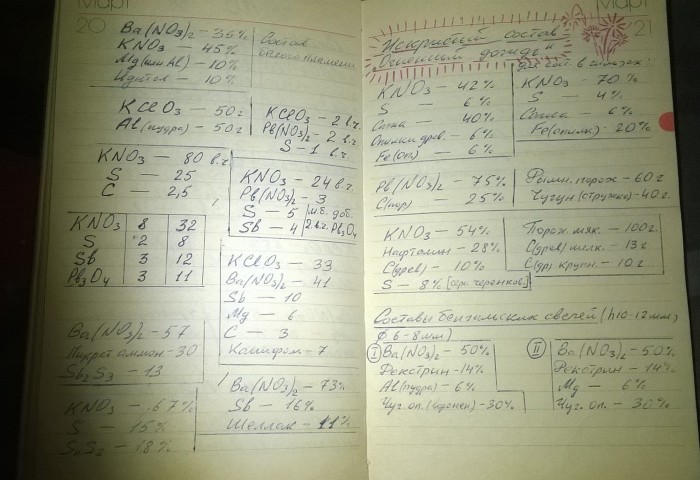 Март
20
Ba(NO3)2 – 35%
KNO3 – 45%
Mg (или Al) – 10%
Идитол – 10%
Состав
белого пламени
KClO3 – 50 г
Al (пудра) – 50 г
KClO3 – 2 в.ч.
Pb(NO3)2 – 2 в.ч.
S – 1 в.ч.
KNO3 – 80 в.ч.
S – 25
C – 2,5
KNO3 – 24 в.ч.
Pb(NO3)2 – 3
S – 5 м.б. доб.
Sb – 4 2 в.ч. Pb3O4
KNO3 8 32
S 2 8
Sb 3 12
Pb3O4 3 11
KClO3 – 33
Ba(NO3)2 – 41
Sb – 10
Mg – 6
C – 3
Канифол. – 7
Ba(NO3)2 – 57
Пикрат аммон – 30
Sb2S3 – 13
Ba(NO3)2 – 73%
Sb – 16%
Шеллак – 11%
KNO3 – 67%
S – 15%
– 18%
Март
21
Искристый состав
"Огненный дождь"
в гильзах:
KNO3 – 42%
S – 6%
Сажа – 40%
Опилки древ. – 6%
Fe (оп.) – 6%
KNO3 – 70%
S – 4%
Сажа – 6%
Fe (опилк.) – 20%
Pb(NO3)2 – 75%
C – 25%
порох – 60 г
Чугун (стружка) – 40 г.
KNO3 – 54%
Нафталин – 28%
C (древ) – 10%
S – 8% [сер. черенков]
Порох. мяк. – 100 г.
C (древ) мелк. – 13 г
C (др) крупн. – 10 г
Составы бенгальских свечей (h 10-12 мм;
ф 6-8 мм)
I Ba(NO3)2 – 50%
Декстрин – 14%
Al (пудра) – 6%
Чуг. оп. – 30%
II Ba(NO3)2 – 50%
Декстрин – 14%
Mg – 6%
Чуг. оп. – 30%